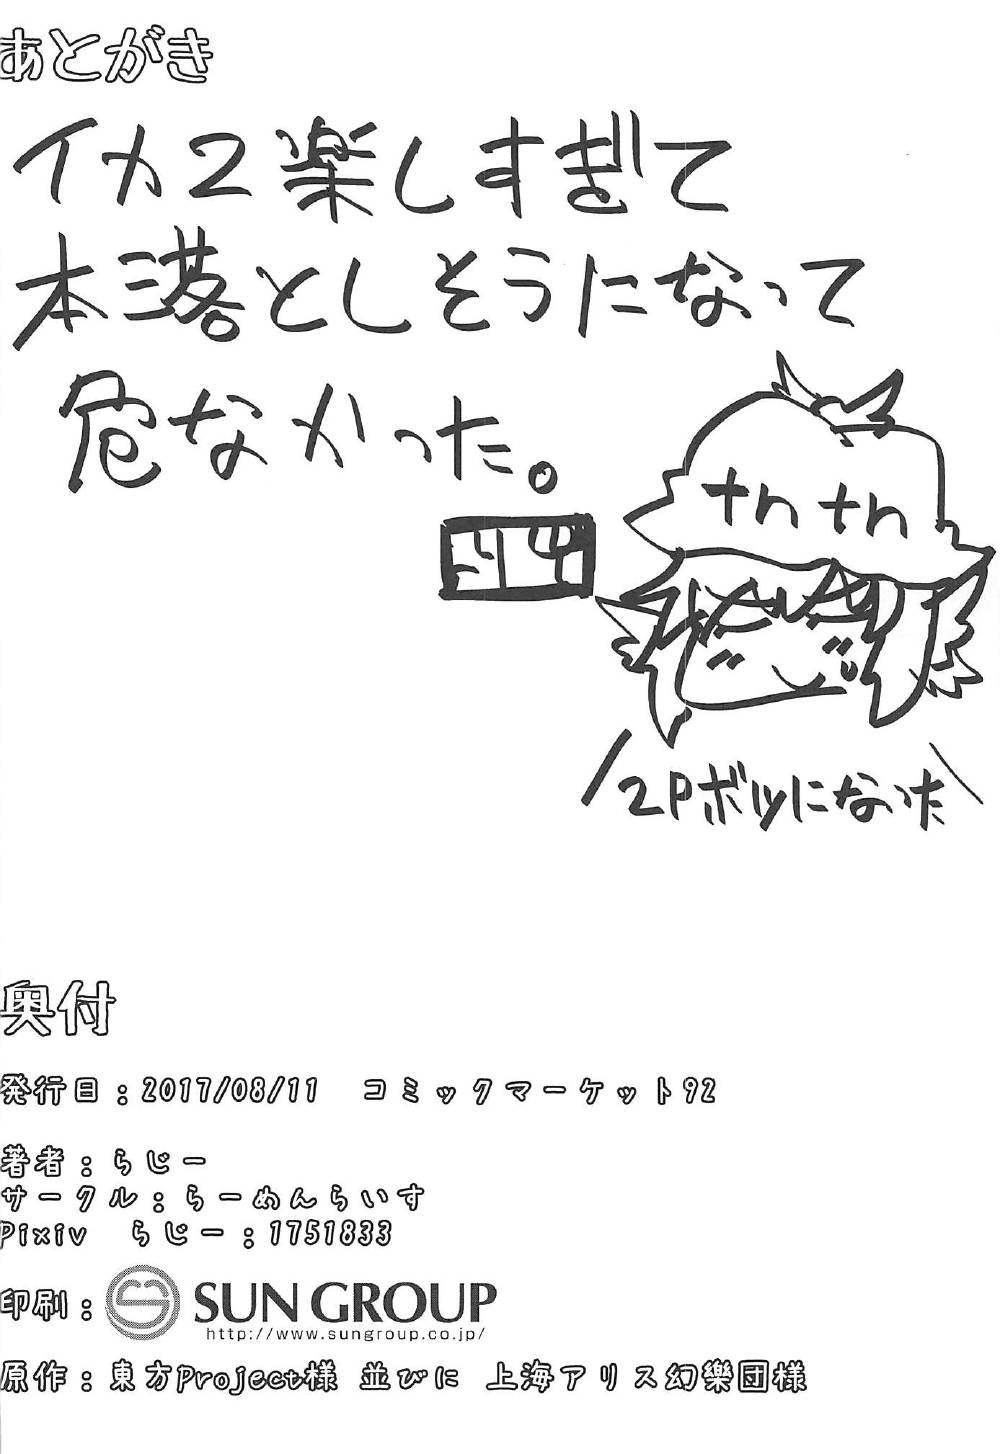 あとがき
イカ2楽しすぎて
本落としそうになって
危なかった。
ナhナh
\2Pボツになった/
奥付
発行日：2017/08/11　コミックマーケット92
著者：らじー
サークル：らーめんらいす
Pixiv　らじー：1751833
印刷：SUN GROUP
http://www.sungroup.co.jp/
原作：東方Project様 並びに 上海アリス幻樂団様